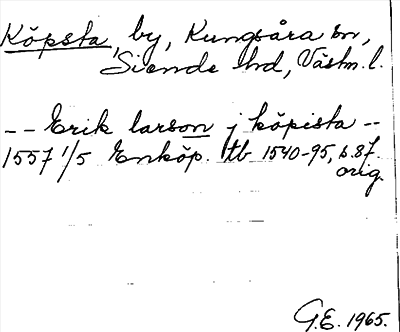 Köpsta, by, Kungsåra sn,
Siende hd, Västm. l.
-- Erik larson j köpista --
1557 1/5 Enköp. tb 1540-95, s. 87.
orig.
G.E. 1965.